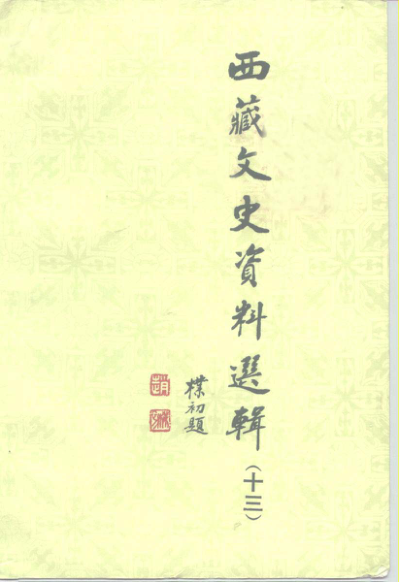 西藏文史資料選輯(十三)
樸初題
趙